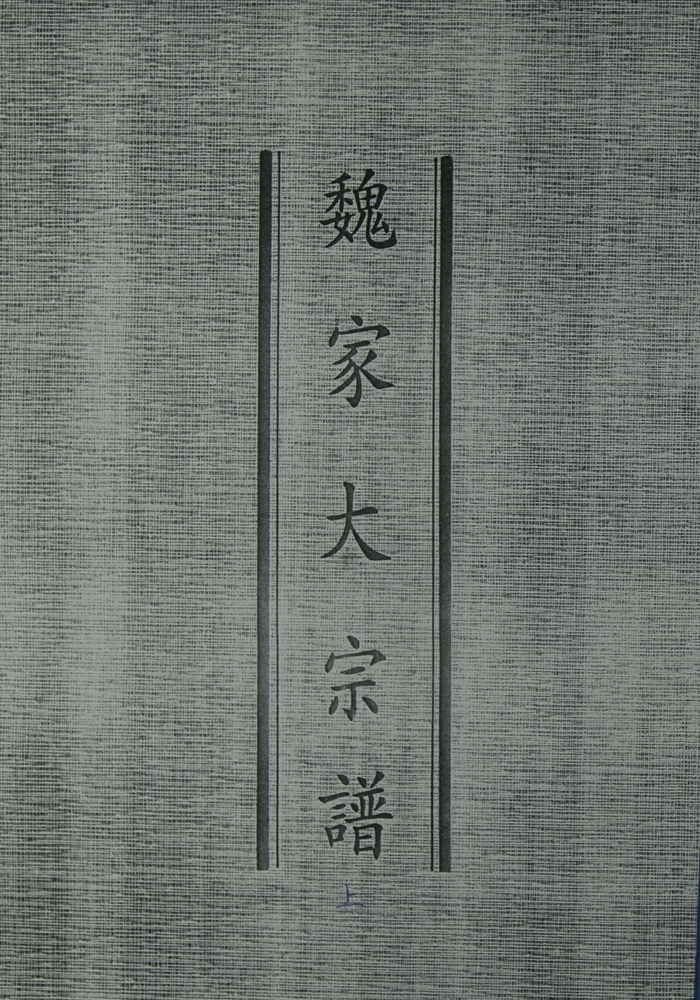 魏家大宗譜
上